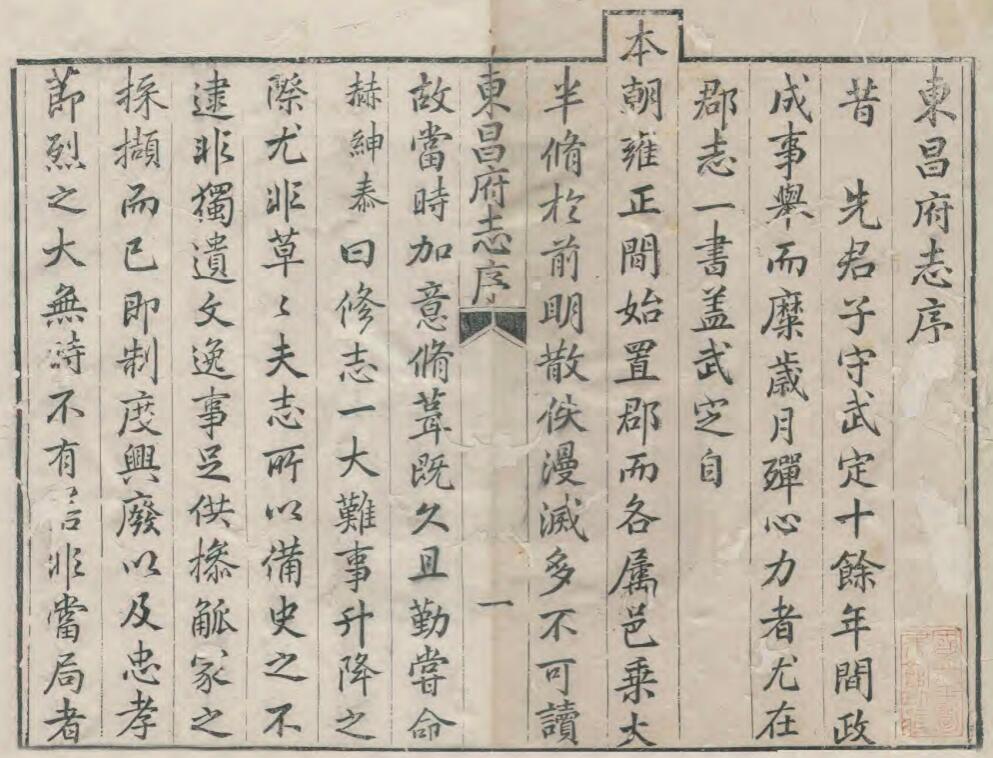 東昌府志序
昔　先君子守武定十餘年間政
成事舉而糜歲月殫心力者尤在
郡志一書盖武定自
本朝雍正間始置郡而各屬邑乗大
半脩於前明散佚漫滅多不可讀
東昌府志序　一
故當時加意脩葺既久且勤嘗命
赫紳泰曰修志一大難事升降之
際尤非草〻夫志所以備史之不
逮非獨遺文逸事足供摻觚家之
採擷而已即制度興廢以及忠孝
節烈之大無時不有 非當局者